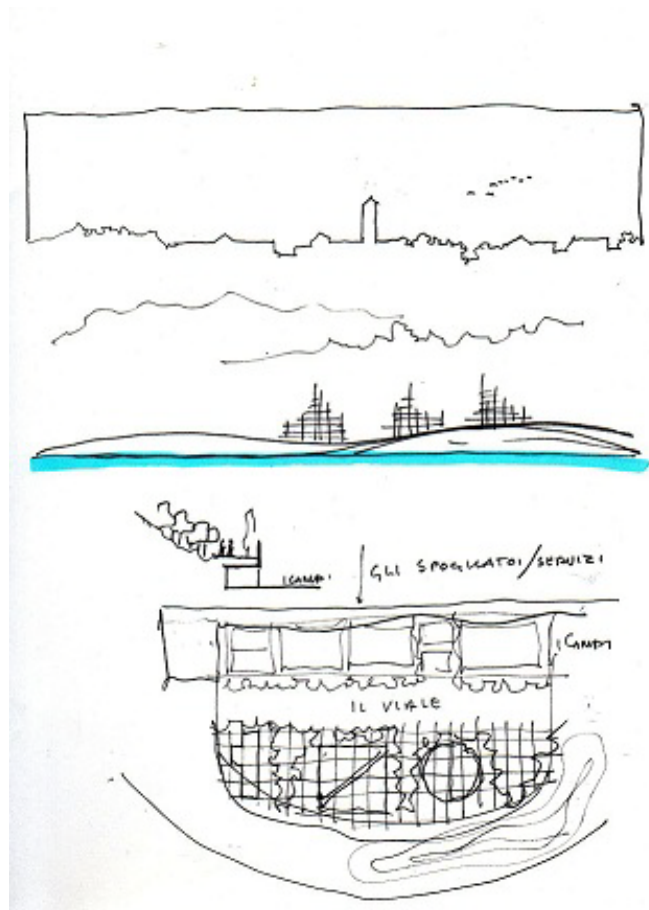 I CAMPI
GLI SPOGLIATOI/SERVIZI
I CAMPI
IL VIALE